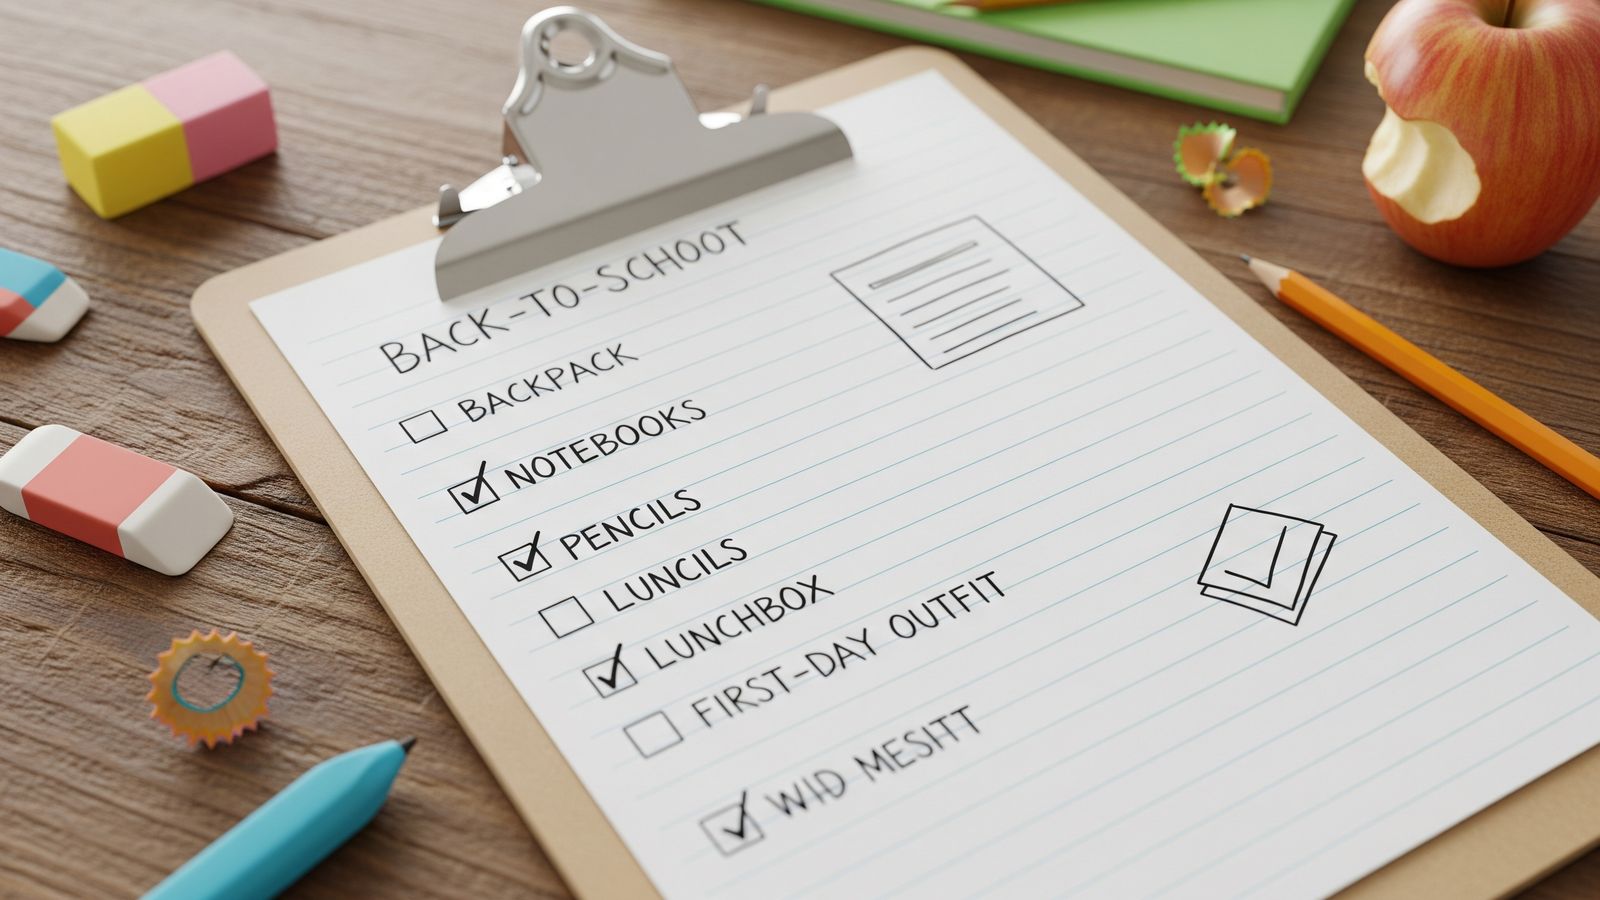 BACK-TO-SCHOOT
BACKPACK
NOTEBOOKS
PENCILS
LUNCILS
LUNCHBOX
FIRST-DAY OUTFIT
WHD MESHTT